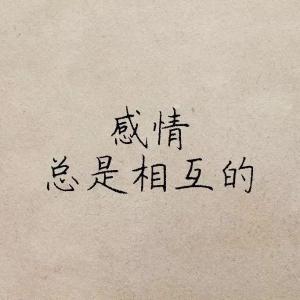 感情
总是相互的